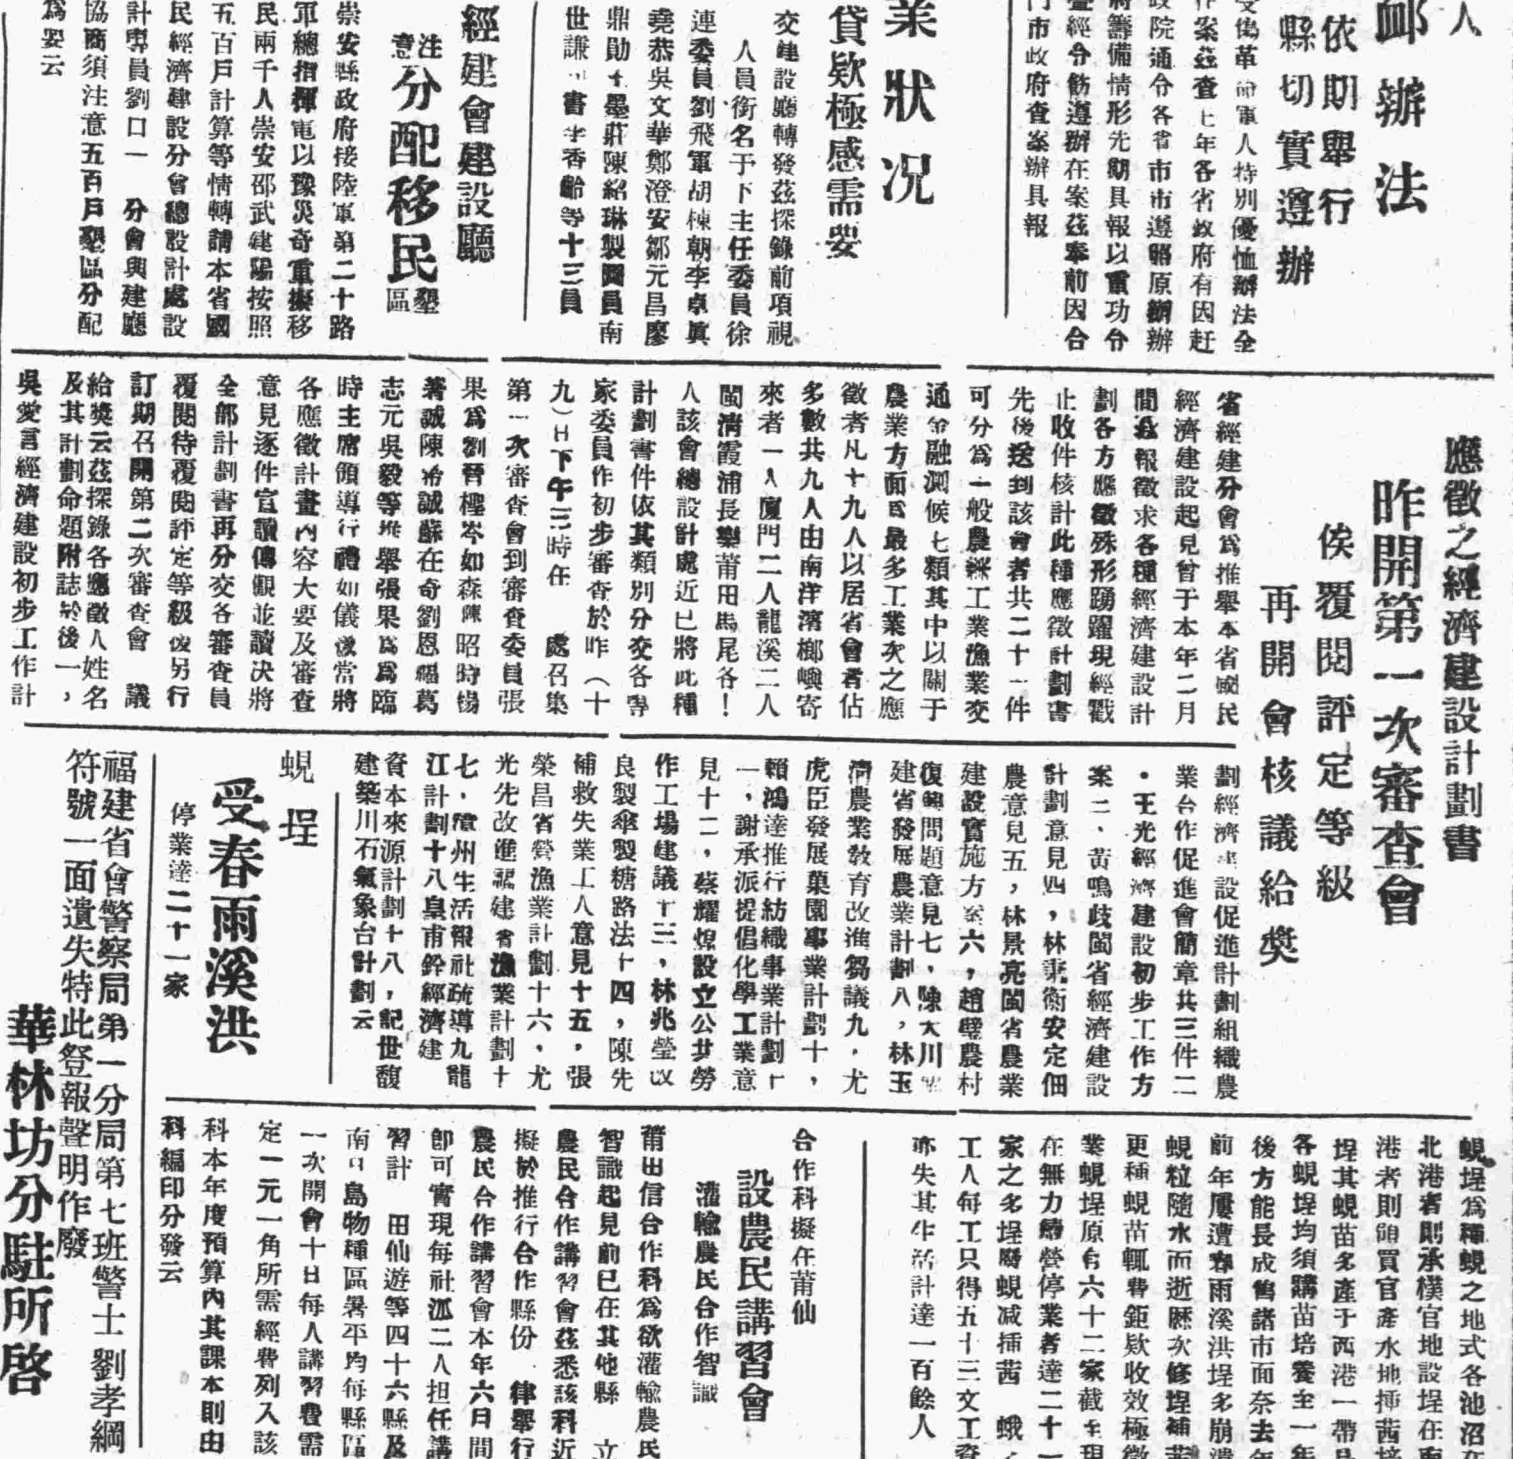 人
卹辦法
依期舉行
縣切實遵辦
軍人特別優恤辦法全
作案茲查上年各省政府有因赶
政院通令各省市市遵照原頒辦
籌備情形先期具報以重功令
經分飭遵辦在案茲奉前因合
門市政府查案辦具報
業狀况
貸欵極感需要
交建設廳轉發茲探錄前項視
人員銜名于下主任委員徐
連委員劉飛軍胡棟朝李卓眞
堯恭吳文華鄭澄安鄒元昌廖
鼎勛 墨莊陳紹琳製圖員南
世謙 書 李香齡等十三員
經建會建設廳
注意分配移民墾區
崇安縣政府接陸軍第二十路
軍總指揮電以豫災奇重擬移
民兩千人崇安邵武建陽按照
五百戶計算等情轉請本省國
民經濟建設分會總設計處設
計專員劉口一 分會與建廳
協商須注意五百戶墾區分配
爲要云
應徵之經濟建設計劃書
昨開第一次審查會
俟覆閱評定等級
再開會核議給獎
省經建分會爲推舉本省國民
經濟建設起見曾于本年二月
間登報徵求各種經濟建設計
劃各方應徵殊形踴躍現經戳
止收件核計此種應徵計劃書
先後送到該會者共二十一件
可分爲一般農林工業漁業交
通金融測候七類其中以關于
農業方面爲最多工業次之應
徵者凡十九人以居省會者佔
多數共九人由南洋濱榔嶼寄
來者一人廈門二人龍溪二人
閩清霞浦長樂莆田馬尾各!
人該會總設計處近已將此種
計劃書件依其類別分交各專
家委員作初步審查於昨（十
九）日下午三時在 處召集
第一次審查會到審查委員張
果爲劉晉櫣岑如森陳昭時楊
著誠陳希誠蘇在奇劉恩福葛
志元吳毅等推舉張果爲爲臨
時主席領導行禮如儀後當將
各應徵計畫內容大要及審查
意見逐件宣讀傳觀並議决將
全部計劃書再分交各審查員
覆閱待覆閱評定等級後另行
訂期召開第二次審查會 議
給獎云茲探錄各應徵人姓名
及其計劃命題附誌於後一,
吳愛言經濟建設初步工作計
劃經濟建設促進計劃組織農
業合作促進會簡章共三件二
·王光經濟建設初步工作方
案三、黃鳴歧閩省經濟建設
計劃意見四,林秉衡安定佃
農意見五,林景亮閩省農業
建設實施方案六,趙璧農村
復興問題意見七,陳大川
建省發展農業計劃八,林玉
濤農業敎育改進芻議九,尤
虎臣發展菓園事業計劃十,
賴鴻達推行紡織事業計劃十
一,謝承派提倡化學工業意
見十二,蔡耀煌設立公共勞
作工場建議十三,林兆瑩改
良製傘製糖路法十四,陳先
補救失業工人意見十五,張
榮昌省營漁業計劃十六,尤
光先改進福建省漁業計劃十
七,漳州生活報社疏導九龍
江計劃十八皇甫鈴經濟建
資本來源計劃十八,記世馥
建築川石氣象台計劃云
蜆埕
受春雨溪洪
停業達二十一家
蜆埕爲種蜆之地式各池沼在
北港者則承樸官地設埕在南
港者則領買官產水地揷茜培
埕其蜆苗多產于西港一帶
各蜆埕均須購苗培養至一年
後方能長成售諸市面奈去年
前年屢遭春雨溪洪埕多崩潰
蜆粒隨水而逝歷次修埕補苗
更種蜆苗輒費鉅欵收效極微
業蜆埕原有六十二家截至現
在無力續營停業者達二十一
家之多埕廢蜆减揷茜
工人每工只得五十三文工資
亦失其生活計達一百餘人
合作科擬在莆仙
設農民講習會
灌輸農民合作智識
莆田信合作科爲欲灌輸農民
智識起見前已在其他縣 立
農民合作講習會茲悉該科近
擬於推行合作縣份 律舉行
農民合作講習會本年六日間
即可實現每社派二人担任講
習計 田仙遊等四十六縣及
南日島物種區署平均每縣區
一次開會十日每人講習費需
定一元一角所需經費列入該
科本年度預算內其課本則由
科編印分發云
福建省會警察局第一分局第七班警士劉孝綱
符號一面遺失特此登報聲明作廢
華林坊分駐所啓